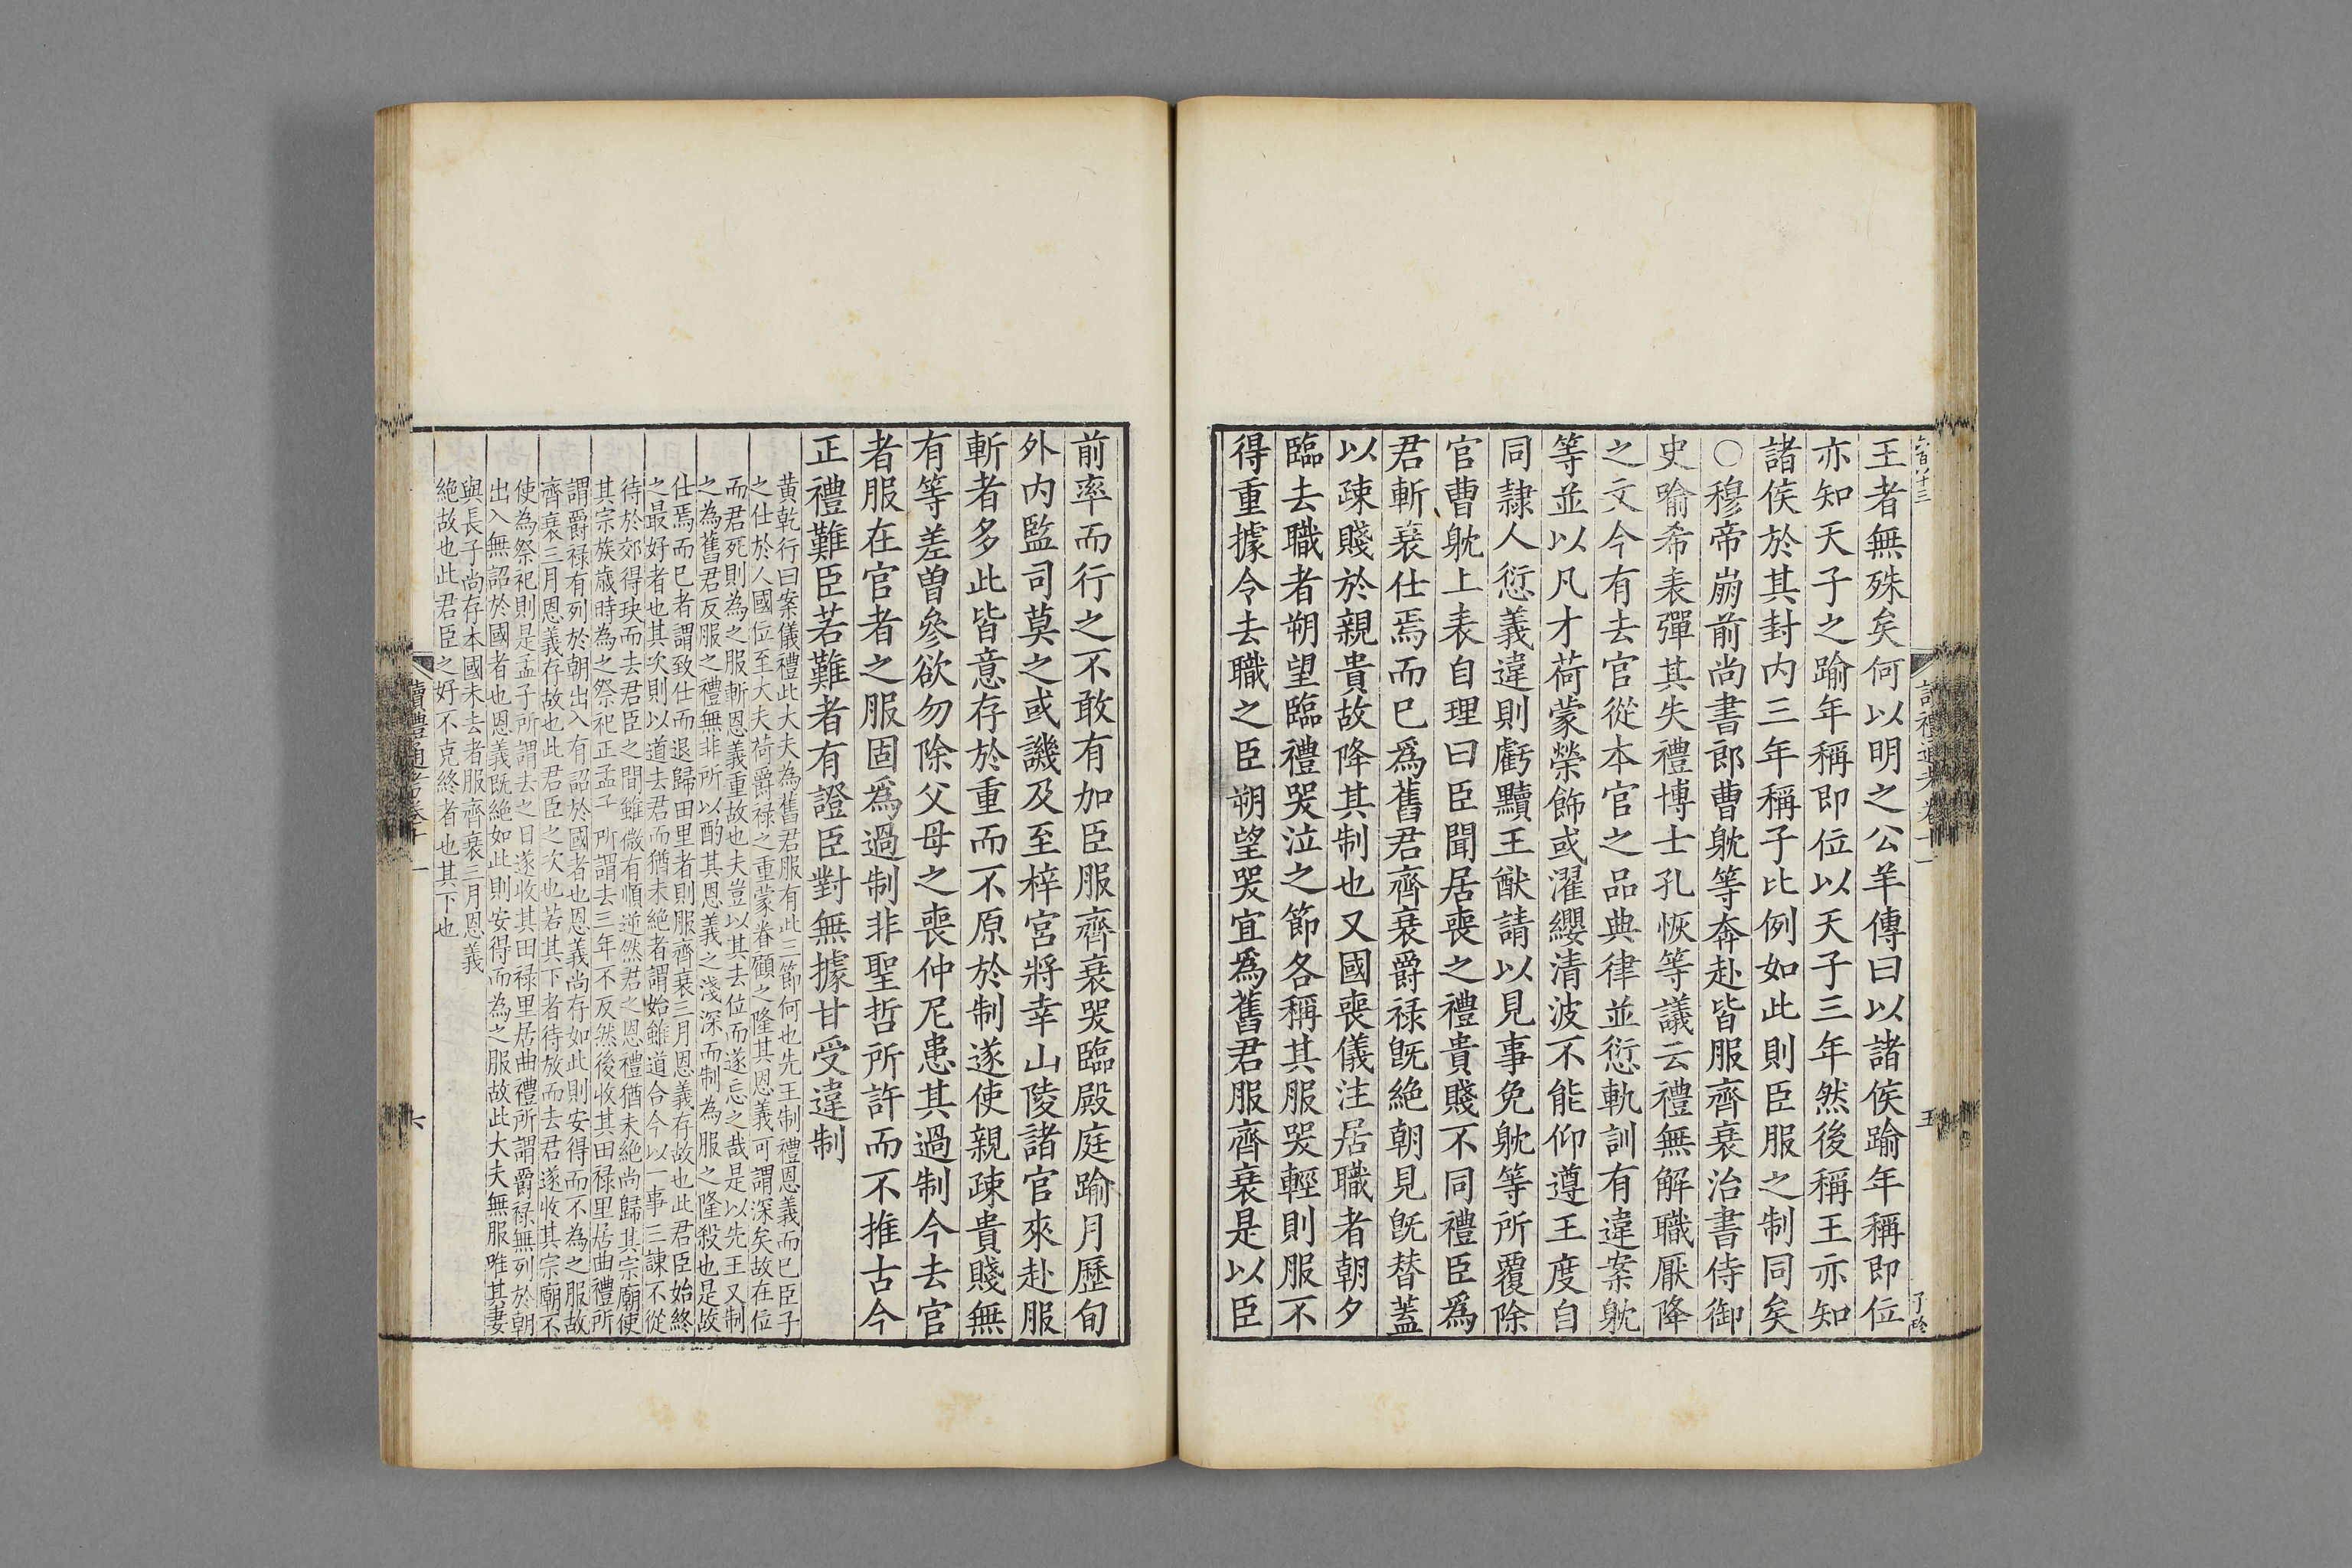 王者無殊矣何以明之公羊傳曰以諸侯踰年稱即位
亦知天子之踰年稱即位以天子三年然後稱王亦知
諸侯於其封内三年稱子比例如此則臣服之制同矣
○穆帝崩前尚書郎曹躭等奔赴皆服齊衰治書侍御
史喻希表彈其失禮博士孔恢等議云禮無解職厭降
之文今有去官從本官之品典律並愆軌訓有違案躭
等並以凡才荷蒙榮飾或濯纓清波不能仰遵王度自
同隷人愆義違則虧黷王猷請以見事免躭等所覆除
官曹躭上表自理曰臣聞居喪之禮貴賤不同禮臣爲
君斬衰仕焉而已爲舊君齊衰爵禄旣絶朝見旣替蓋
以疎賤於親貴故降其制也又國喪儀注居職者朝夕
臨去職者朔望臨禮哭泣之節各稱其服哭輕則服不
得重據令去職之臣朔望哭宜爲舊君服齊衰是以臣
前率而行之不敢有加臣服齊衰哭臨殿庭踰月歷旬
外内監司莫之或譏及至梓宮將幸山陵諸官來赴服
斬者多此皆意存於重而不原於制遂使親疎貴賤無
有等差曽參欲勿除父母之喪仲尼患其過制今去官
者服在官者之服固爲過制非聖哲所許而不推古今
正禮難臣若難者有證臣對無據甘受違制
黄乾行曰案儀禮此大夫為舊君服有此三節何也先王制禮恩義而已臣子
之仕於人國位至大夫荷爵禄之重蒙眷顧之隆其恩義可謂深矣故在位
而君死則為之服斬恩義重故也夫豈以其去位而遂忘之哉是以先王又制
之為舊君反服之禮無非所以酌其恩義之淺深而制為服之隆殺也是故
仕焉而已者謂致仕而退歸田里者則服齊衰三月恩義存故也此君臣始終
之最好者也其次則以道去君而猶未絶者謂始雖道合今以一事三諫不從
待於郊得玦而去君臣之間雖微有愼逆然君之恩禮猶未絶尚歸其宗廟使
其宗族歲時為之祭祀正孟子所謂去三年不反然後收其田禄里居曲禮所
謂爵禄有列於朝出入有詔於國者也恩義尚存如此則安得而不為之服故
齊衰三月恩義存故也此君臣之次也若其下者待放而去君遂收其宗廟不
使為祭祀則是孟子所謂去之日遂收其田禄里居曲禮所謂爵禄無列於朝
出入無詔於國者也恩義既絶如此則安得而為之服故此大夫無服唯其妻
與長子尚存本國未去者服齊衰三月恩義
絶故也此君臣之好不克終者也其下也
讀禮通考卷十一
六
五